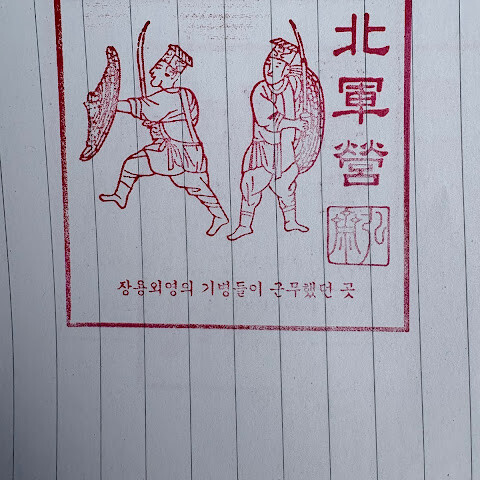 北軍營
장용외영의 기병들이 근무했던 곳